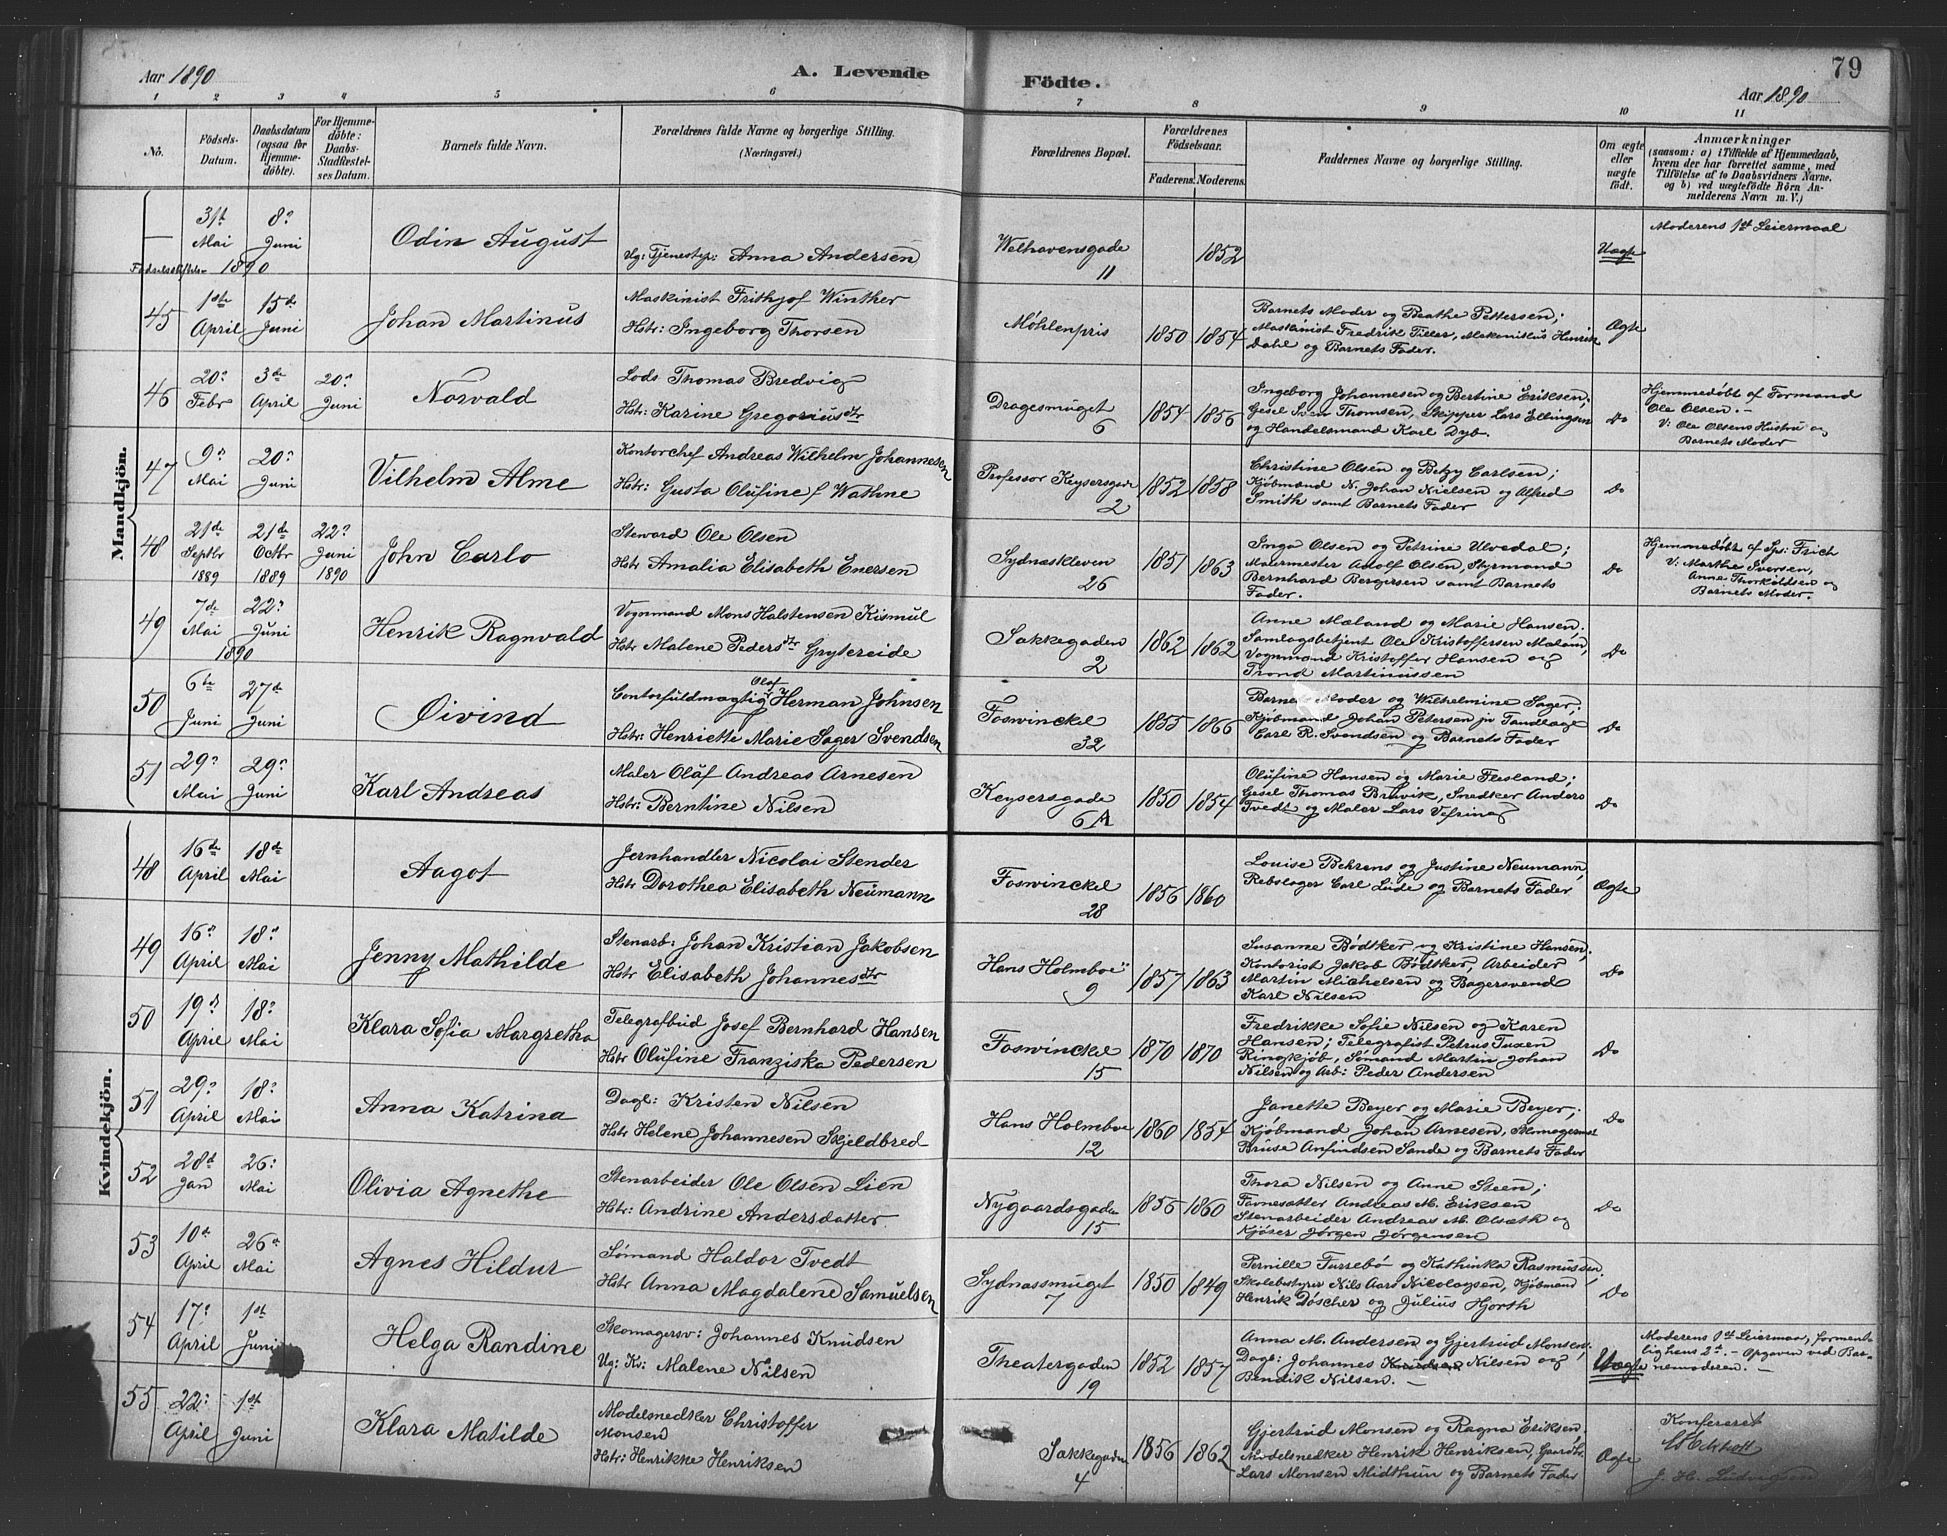 79
Aar 1890
A. Levende
Födte.
Aar 1890
1 2 3 4 5 6 7 8 9 10 11
No.
Födsels-
Datum.
Daabsdatum
(ogsaa for
Hjemme-
döbte).
For Hjemme-
döbte:
Daabs-
Stadfæstel-
ses Datum.
Barnets fulde Navn.
Forældrenes fulde Navne og borgerlige Stilling.
(Næringsvei.)
Forældrenes Bopæl.
Forældrenes
Födselsaar.
Faderens.
Moderens.
Faddernes Navne og borgerlige Stilling.
Om ægte
eller
uægte
födt.
Anmærkninger
(saasom: a) i Tilfælde af Hjemmedaab,
hvem der har forrettet samme, med
Tilföielse af to Daabsvidners Navne.
og b) ved uægtefödte Börn An-
melderens Navn m. V.)
Mandkjön.
31te Mai
8de Juni
1890
Odin August
Ug: Tjenestep: Anna Andersen
Welhavensgade
11
1852
Uægte
Moderens 1ste Leiermaal
45
1ste April
15de Juni
Johan Martinus
Maskinist Frithjof Winther
Hstr: Ingeborg Thorsen
Møhlenpris
1850 1854
Barnets Moder og Beathe Pettersen;
Maskinist Fredrik Tiller, Mekanikus Henrik
Dahl og Barnets Fader.
Ægte
46
20de Febr
3de April
20de Juni
Norvald
Lods Thomas Bredvig
Hstr: Karine Gregoriusdtr
Dragesmuget
6
1854 1856
Ingeborg Johannesen og Bertine Eriksen;
Gesel Sven Thomsen, Skipper Lars Ellingsen
og Handelsmand Karl Dyb.
Do
Hjemmedøbt af Formand
Ole Olsen. —
V: Ole Olsens Hustru og
Barnets Moder
47
9de Mai
20de Juni
Vilhelm Alme
Kontorchef Andreas Wilhelm Johannesen
Hstr: Gusta Olufine f Wathne
Professor Keysersgade
2
1852 1858
Christine Olsen og Betzy Carlsen;
Kjøbmænd N. Johan Nielsen og Alfred
Smith samt Barnets Fader
Do
48
21de Septbr 1889
21de Octbr 1889
22de Juni 1890
John Carlo
Steward Ole Olsen
Hstr Amalia Elisabeth Enersen
Sydnæskleven
26
1851 1863
Inga Olsen og Petrine Ulvedal;
Malermester Adolf Olsen, Styrmand
Bernhard Bergersen samt Barnets
Fader.
Do
Hjemmedøbt af Sp: Frich
V: Marthe Iversen,
Anne Thorkoldsen og
Barnets Moder.
49
7de Mai
22de Juni
1890
Henrik Ragnvald
Vognmand Mons Halstensen Kismul
Hstr Malene Pedersdtr Grytereide
Sakkegaden
2
1862 1862
Anne Mæland og Marie Hansen;
Samlagsbetjent Ole Kristoffersen
Vognmand Kristoffer Hansen og
Trond Martinussen
Do
50
6te Juni
27de Juni
Øivind
Olaf
Contorfuldmægtig Herman Johnsen
Hstr: Henriette Marie Sager Svendsen
Foswinckel
32
1855 1866
Barnets Moder og Wilhelmine Sager;
Kjøbmand Johan Petersen jr Tandlæge
Carl R. Svendsen og Barnets Fader
Do
51
29de Mai
29de Juni
Karl Andreas
Maler Olaf Andreas Arnesen
Hstr: Berntine Nilsen
Keysersgade
6 A
1850 1854
Olufine Hansen og Marie Flesland;
Gesel Thomas Bruvik, Snedker Anders
Tvedt og Maler Lars Vefring
Do
Kvindekjön.
48
16de April
18de Mai
Aagot
Jernhandler Nicolai Stender
Hstr Dorothea Elisabeth Neumann
Foswinckel
28
1856 1860
Louise Behrens og Justine Neumann
Rebslager Carl Lude og Barnets Fader
Ægte
49
16de April
18de Mai
Jenny Mathilde
Stenarb: Johan Kristian Jakobsen
Hstr Elisabeth Johannesdtr
Hans Holmboe
9
1857 1863
Susanne Bødtker og Kristine Hansen;
Kontorist Jakob Bødtker, Arbeider
Martin Michelsen og Bagersvend
Karl Nilsen
Do
50
19de April
18de Mai
Klara Sofia Margretha
Telegrafbud Josef Bernhard Hansen
Hstr Olufine Franziska Pedersen
Foswinckel
15
1870 1870
Fredrikke Sofie Nilsen og Karen
Hansen; Telegrafist Petrus Tuxen
Ringkjøb, Sømand Martin Johan
Nilsen og Arb: Peder Andersen
Do
51
29de April
18de Mai
Anna Katrina
Dagl: Kristen Nilsen
Hstr Helene Johannesen Skjeldbred
Hans Holmboe
12
1860 1854
Janette Beyer og Marie Beyer;
Kjøbmand Johan Arnesen, Skomagermst
Bruse Anfindsen Sande og Barnets Fader
Do
52
28d Jan
26: Mai
Olivia Agnethe
Stenarbeider Ole Olsen Lien
Hstr: Andrine Andersdatter
Nygaardsgaden
15
1856 1860
Thora Nilsen og Anne Steen;
Favnesætter Andreas M. Eriksen
Stenarbeider Andreas M. Olsæth og
Kjøser Jørgen Jørgensen
Do
53
10d April
26d Mai
Agnes Hildur
Sømand Haldor Tvedt
Hstr Anna Magdalene Samuelsen
Sydnæssmuget
7
1850 1849
Pernille Furrebø og Kathinka Rasmussen;
Skolebstyrer Nils Aars Nicolaysen, Kjøbmand
Henrik Døscher og Julius Hjorth
Do
54
17: April
1st Juni
Helga Randine
Skomagersv: Johannes Knudsen
Ug: Kv: Malene Nilsen
Theatergaden
19
1852 1857
Anna M. Andersen og Gjertrud Monsen;
Dagl: Johannes Knudsen Nilsen og
Bendik Nilsen. —
Uægte
Moderens 1st Leiermaa, forment-
lig hans 2d. — Opgaven ved Bar-
nemoderen. —
55
22: April
1st Juni
Klara Matilde
Modelsnedker Christoffer
Monsen
Hstr: Henrikke Henriksen
Sakkegaden
4
1856 1862
Gjertrud Monsen og Ragna Eriksen;
Modelsnedker Henrik Henriksen, Gaardbr
Lars Monsen Midthun og Barnets Fader
Ægte
Konfereret
J. H. Ludvigsen